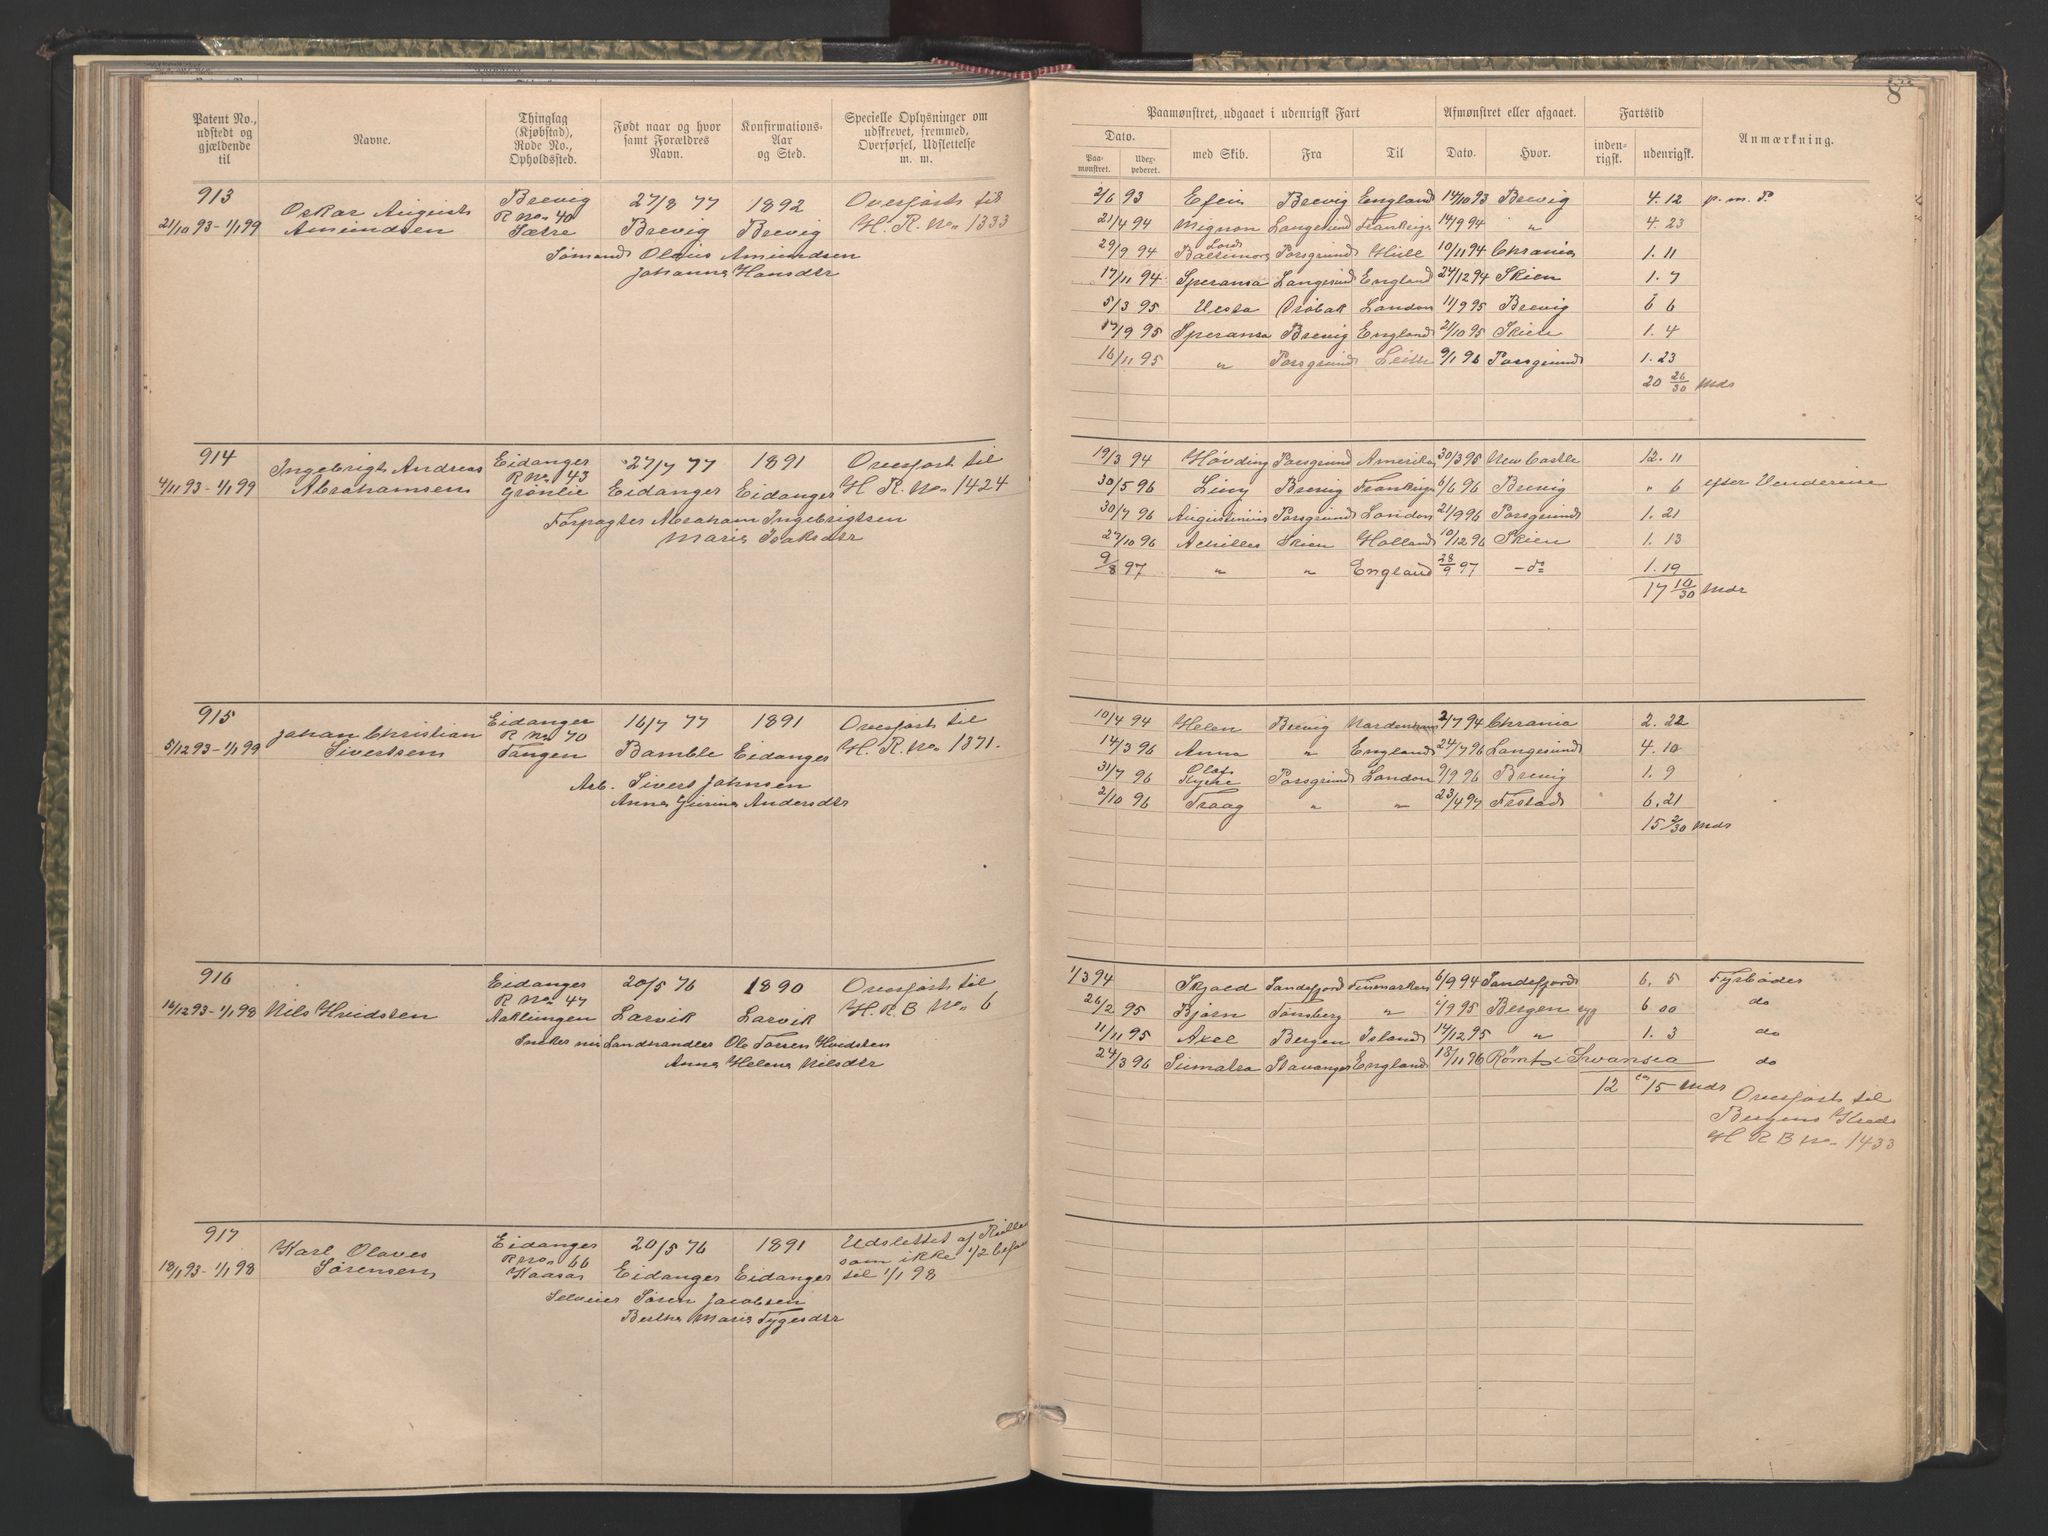 Patent No., udstedt og gjældende til
Navne.
Thinglag (Kjøbstad), Rode No., Opholdssted.
Født naar og hvor samt Forældres Navn.
Konfirmations-Aar og Sted.
Specielle Oplysninger om udskrevet, fremmed, Overførsel, Udslettelse m. m.
Paamønstret, udgaaet i udenrigsk Fart
Afmønstret eller afgaaet.
Fartstid
Anmærkning.
Dato.
Paa-mønstret.
Udex-pederet.
med Skib.
Fra
Til
Dato.
Hvor.
inden-rigsk.
udenrigsk.
8
913
21/10 93 - 1/1 99
Oskar August
Amundsen
Brevig
R No 40
Sætre
27/8 77
Brevig
1892
Brevig
Overført til
H. R. No 1333
Sømand Olaus Amundsen
Johanne Hansdtr
2/6 93 Brevig England 14/10 93 Brevig 4. 12 p. m. P
21/4 94 Mignon Langesund Frankrig 14/9 94 " 4. 23
29/9 94 Lord Baltimore Porsgrund Hull 10/11 94 Chrania 1. 11
17/11 94 Speransa Langesund England 24/12 94 Skien 1. 7
5/3 95 Vesta Drøbak London 11/9 95 Brevig 6 6
17/9 95 Speransa Brevig England 21/10 95 Skien 1. 4
16/11 95 " Porsgrund Leith 9/1 96 Porsgrund 1. 23
20 26/30 Mdr
914
4/11 93 - 1/1 99
Ingebrigt Andreas
Abrahamsen
Eidanger
R No 43
Grønlie
27/7 77
Eidanger
1891
Eidanger
Overført til
H R. No 1424
Forpagter Abraham Ingebrigtsen
Marie Isaksdtr
19/3 94 Høvding Porsgrund Amerika 30/3 95 New Castle 12. 11
30/5 96 Brevig Frankrig 6/6 96 Brevig " 6 efter Vendereise
30/7 96 Augustinius Porsgrund London 21/9 96 Porsgrund 1. 21
27/10 96 Achilles Skien Holland 10/12 96 Skien 1. 13
9/8 97 " " England 28/9 97 - do 1. 19
17 10/30 Mdr
915
5/12 93 - 1/1 99
Johan Christian
Sivertsen
Eidanger
R No 70
Tangen
16/7 77
Bamble
1891
Eidanger
Overført til
H. R. No 1371.
Arb. Sivert Johnsen
Anne Gurine Andersdtr
10/4 94 Helen Brevig Nordenham 2/7 94 Chrania 2. 22
14/3 96 Anna " England 24/7 96 Langesund 4. 10
31/7 96 Olaf Kyrre Porsgrund London 9/9 96 Brevig 1. 9
2/10 96 Traag " " 23/4 97 Frstad 6. 21
15 2/30 Mdr
916
16/12 93 - 1/1 98
Nils Hvidsten
Eidanger
R No 47
Aaklungen
20/5 76
Larvik
1890
Larvik
Overført til
H. R. B No 6
Snekker nu Landhandler Ole Torsen Hvidsten
Anne Helene Nilsdtr
1/3 94 Skjold Sandefjord Finmarken 6/9 94 Sandefjord 6. 5 Fyrbøder
26/2 95 Bjørn Tønsberg " 1/9 95 Bergen syg 6 00 do
11/11 95 Axel Bergen Island 14/12 95 " 1. 3 do
24/3 96 Sumatra Stavanger England 18/11 96 Rømt i Swansea do
12 15 Mdr
Overført til
Bergens Kreds
H R B No 1433
917
18/1 93 - 1/1 98
Karl Olaves
Sørensen
Eidanger
R No 66
Kaasa
20/5 76
Eidanger
1891
Eidanger
Udslettet af Rullen
som ikke 1/2 befar
til 1/1 98
Selveier Søren Jacobsen
Berthe Marie Tygesdtr